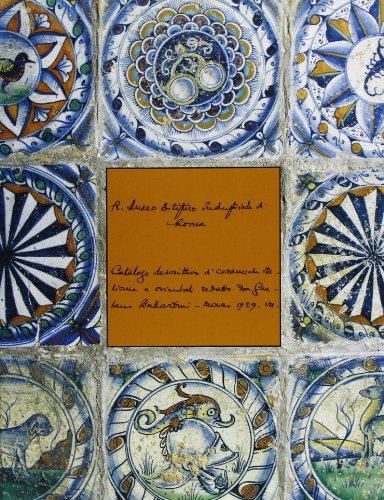 R. Museo Artistico Industriale di
Roma
Catalogo descrittivo di ceramiche ita-
liane e orientali redatto da Gae-
tano Ballardini - marzo 1929. VII.